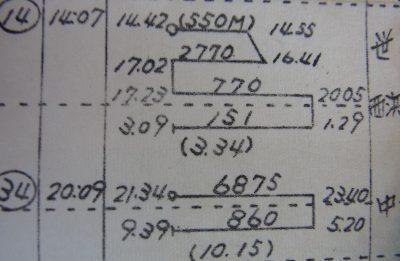 14 14:07 14.42 (550M) 14.55
2770 16.41
17.02
770
17.23 2005
3.09 151 1.29
(3.34)
34 20:09 21.34 6875 23.40
860
9.39 5.20
(10.15)